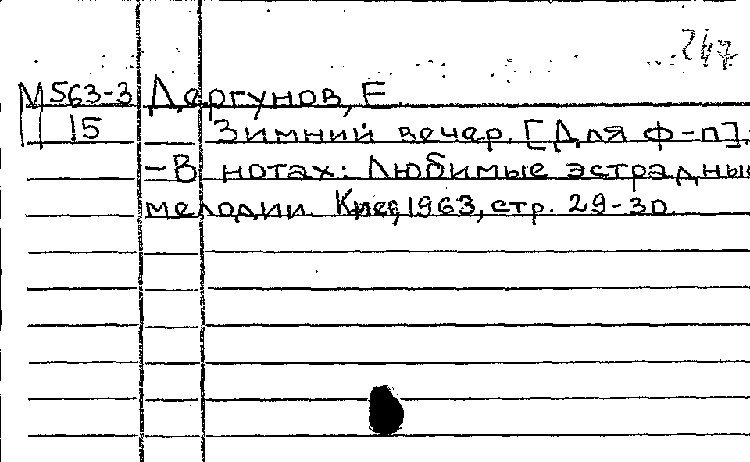 247
М 563-3 Дергунов, Е.
15 Зимний вечер. [Для ф-п].
-В нотах: Любимые эстрадны
мелодии. Киев, 1963, стр. 29-30.